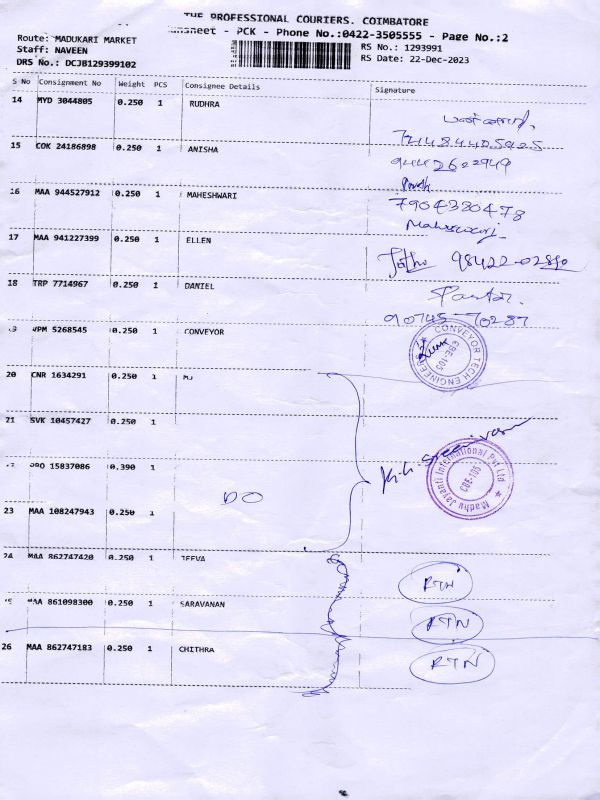 THE PROFESSIONAL COURIERS. COIMBATORE
- PCK - Phone No.:0422-3505555 - Page No.:2
Route: MADUKARI MARKET
Staff: NAVEEN
DRS No.: DCJB129399102
RS No.: 1293991
RS Date: 22-Dec-2023
S No Consignment No Weight PCS Consignee Details Signature
14 MYD 3044805 0.250 1 RUDHRA
74484405925
15 COK 24186898 0.250 1 ANISHA
9442622949
16 MAA 944527912 0.250 1 MAHESHWARI
7904380478
Maheswari
17 MAA 941227399 0.250 1 ELLEN
98422-02890
18 TRP 7714967 0.250 1 DANIEL
90745-70287
VPM 5268545 0.250 1 CONVEYOR
CONVEYOR TECH ENGINEERS
CBE-105
20 CNR 1634291 0.250 1
21 SVK 10457427 0.250 1
K.G. Sreenivasan
15837086 0.390 1
DO
Madhu Jayanti International Pvt Ltd
CBE-105
23 MAA 108247943 0.250 1
24 MAA 862747420 0.250 1 JEEVA
RTN
MAA 861098300 0.250 1 SARAVANAN
RTN
26 MAA 862747183 0.250 1 CHITHRA
RTN